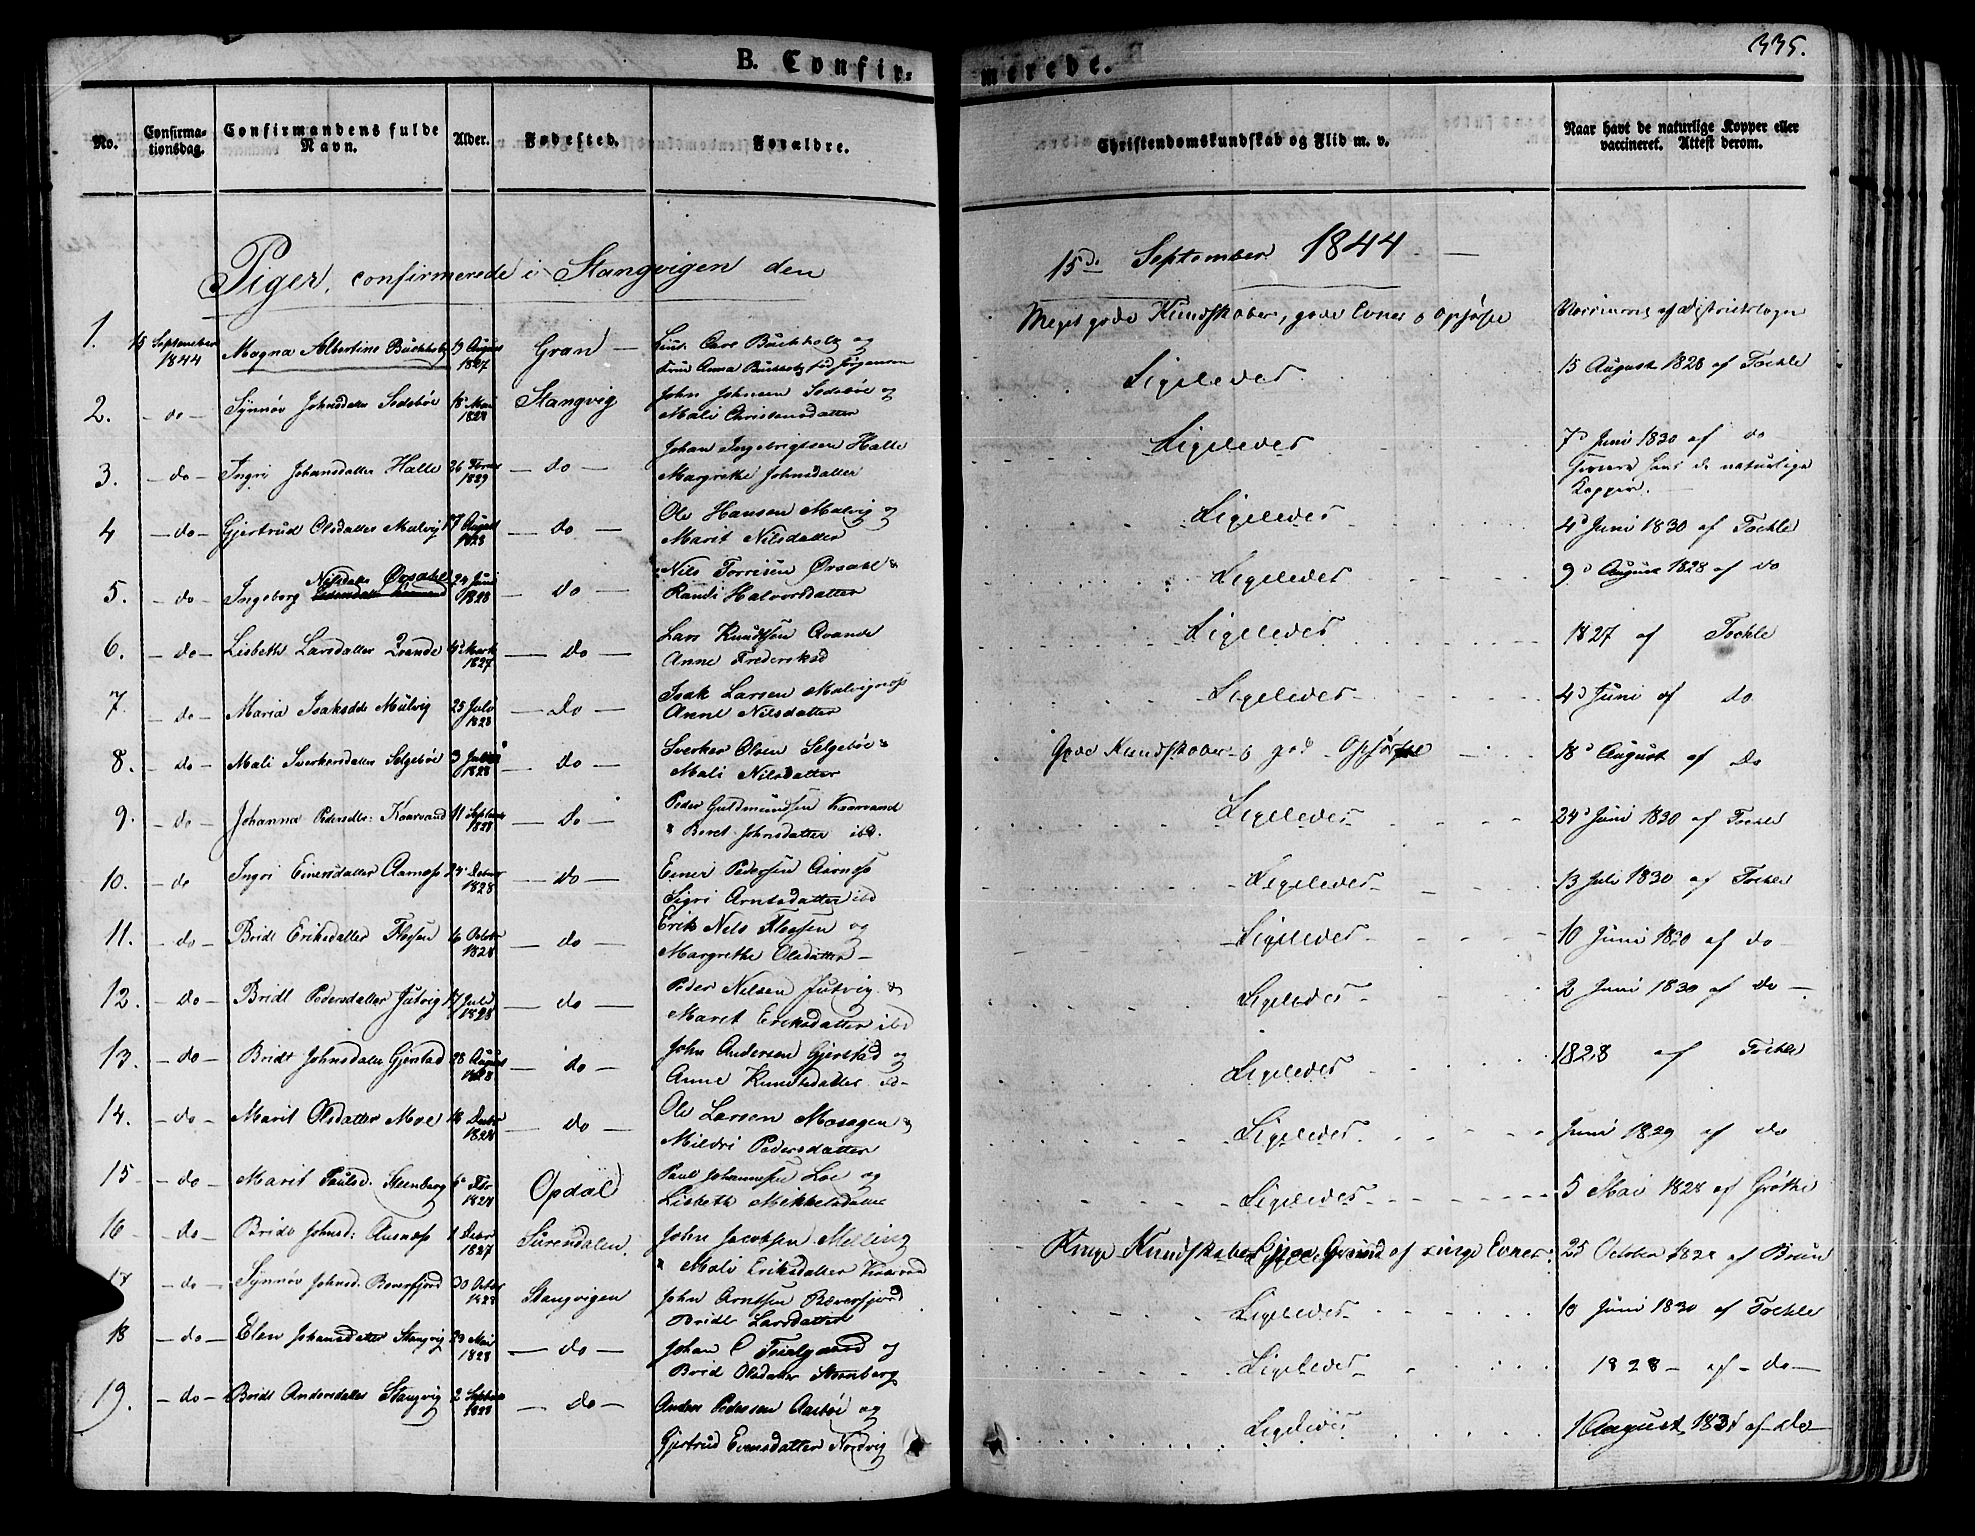 335.
B. Confir=
merede.
No.
Confirma-
tionsdag.
Confirmandens fulde
Navn.
Alder.
Fødested.
Forældre.
Christendomskundskab og Flid m. v.
Naar havt de naturlige Kopper eller
vaccineret. Attest derom.
Piger, confirmerede i Stangvigen den
15de September 1844 —
1. 15 September 1844 Magna Albertine Buchholtz 9 August 1827 Gran — Lieut. Carl Buchholtz og
Frue Anna Buchholtz fød Jørgensen
Meget gode Kundskaber, gode Evner og Opførsel
15 August 1828 af Tochle
2. — do — Synnøv Johnsdatter Sedebøe 18 Mai 1828 Stangvig John Johnsen Sedebøe og
Mali Christensdatter
Ligeledes
7de Juni 1830 af do
3. — do — Ingri Johansdatter Halle 26 1829 — do — Johan Ingebrigtsen Halle
Margrethe Johnsdatter
Ligeledes
de naturlige
Kopper. —
4 — do — Gjertrud Olsdatter Mulvig 17 August 1828 — do — Ole Hansen Mulvig og
Marit Nilsdatter
Ligeledes
4d Juni 1830 af Tochle
5. — do — Ingeborg Nilsdatter Ørsahl 24 Juni 1828 — do — Nils Torrisen Ørsahl &
Randi Halvorsdatter
Ligeledes
9d August 1828 af do
6. — do — Lisbeth Larsdatter Qvande 4 Marts 1827 — do — Lars Knudtsen Qvande
Anne Frederiksd
Ligeledes
1827 af Tochle
7. — do — Maria Isaksdt Mulvig 25 Juli 1828 — Do — Isak Larsen Mulvignæs
Anne Nilsdatter
Ligeledes
4d Juni af do
8. — do — Mali Sverkersdatter Selgebøe 3 1828 — do — Sverker Olsen Selgebøe &
Mali Nilsdatter
Gode Kundskaber og god Opførsel
18d August af Do
9. — do — Johanna Pedersdtr: Kaarvand 11 Septbr 1828 — Do — Peder Guldmundsen Kaarvand
& Beret Johnsdatter ibd.
Ligeledes
24d Juni 1830 af Tochle
10. — do Ingri Einersdatter Aarnæs 24 Decbr 1828 — do — Einer Pedersen Aarnæs
Sigri Arntsdatter ibd
Ligeledes
13 Juli 1830 af Tochle
11. — do — Bridt Eriksdatter Flessen 16 Octobr 1828 — do — Erik Nils Flessen og
Margrethe Olsdatter —
Ligeledes
10 Juni 1830 af do —
12. — do — Bridt Pedersdatter Jutvig 17 Juli 1828 — do — Peder Nilsen Jutvig &
Marit Eriksdatter ibd
Ligeledes
2 Juni 1830 af Do —
13. — do — Bridt Johnsdatter Gjerstad 28 August 1828 — do — John Andersen Gjerstad og
Anne Knudtsdatter ibd —
Ligeledes
1828 af Tochle
14. — do — Marit Olsdatter Moe 16 Decbr 1828 — do — Ole Larsen Moeagen &
Mildri Pedersdatter
Ligeledes
Juni 1829 af do
15 — do — Marit Paulsd. Steenberg 6 Fbr 1828 Opdal Paul Johannesen Loe og
Lisbeth Mikkelsdatter
Ligeledes
5 Mai 1828 af Grøthe
16 — do — Bridt Johnsd: Aasnæs 1 Decbr 1827 Surendalen. John Jacobsen Melling
& Mali Eriksdatter Kaarvand
Ringe Kundskaber paa Grund af ringe Evner:
25 October 1828 af Bruun
17 — do — Synnøv Johnsd. Bæverfjord 30 Octbr 1828 Stangvigen John Arntsen Bæverfjord
Bridt Larsdatter
Ligeledes
10 Juni 1830 af Tochle
18 — do — Elen Johansdatter Stangvig 29 Mai 1828 — do — Johan C
Brid Olsdatter Steenberg
Ligeledes
1828 — af — do —
19. — do — Bridt Andersdatter Stangvig 2 Septbr 1828 — Do — Anders Pedersen Aasbøe og
Gjertrud Evensdatter Nordvig
Ligeledes
1 August 1831 af — do —